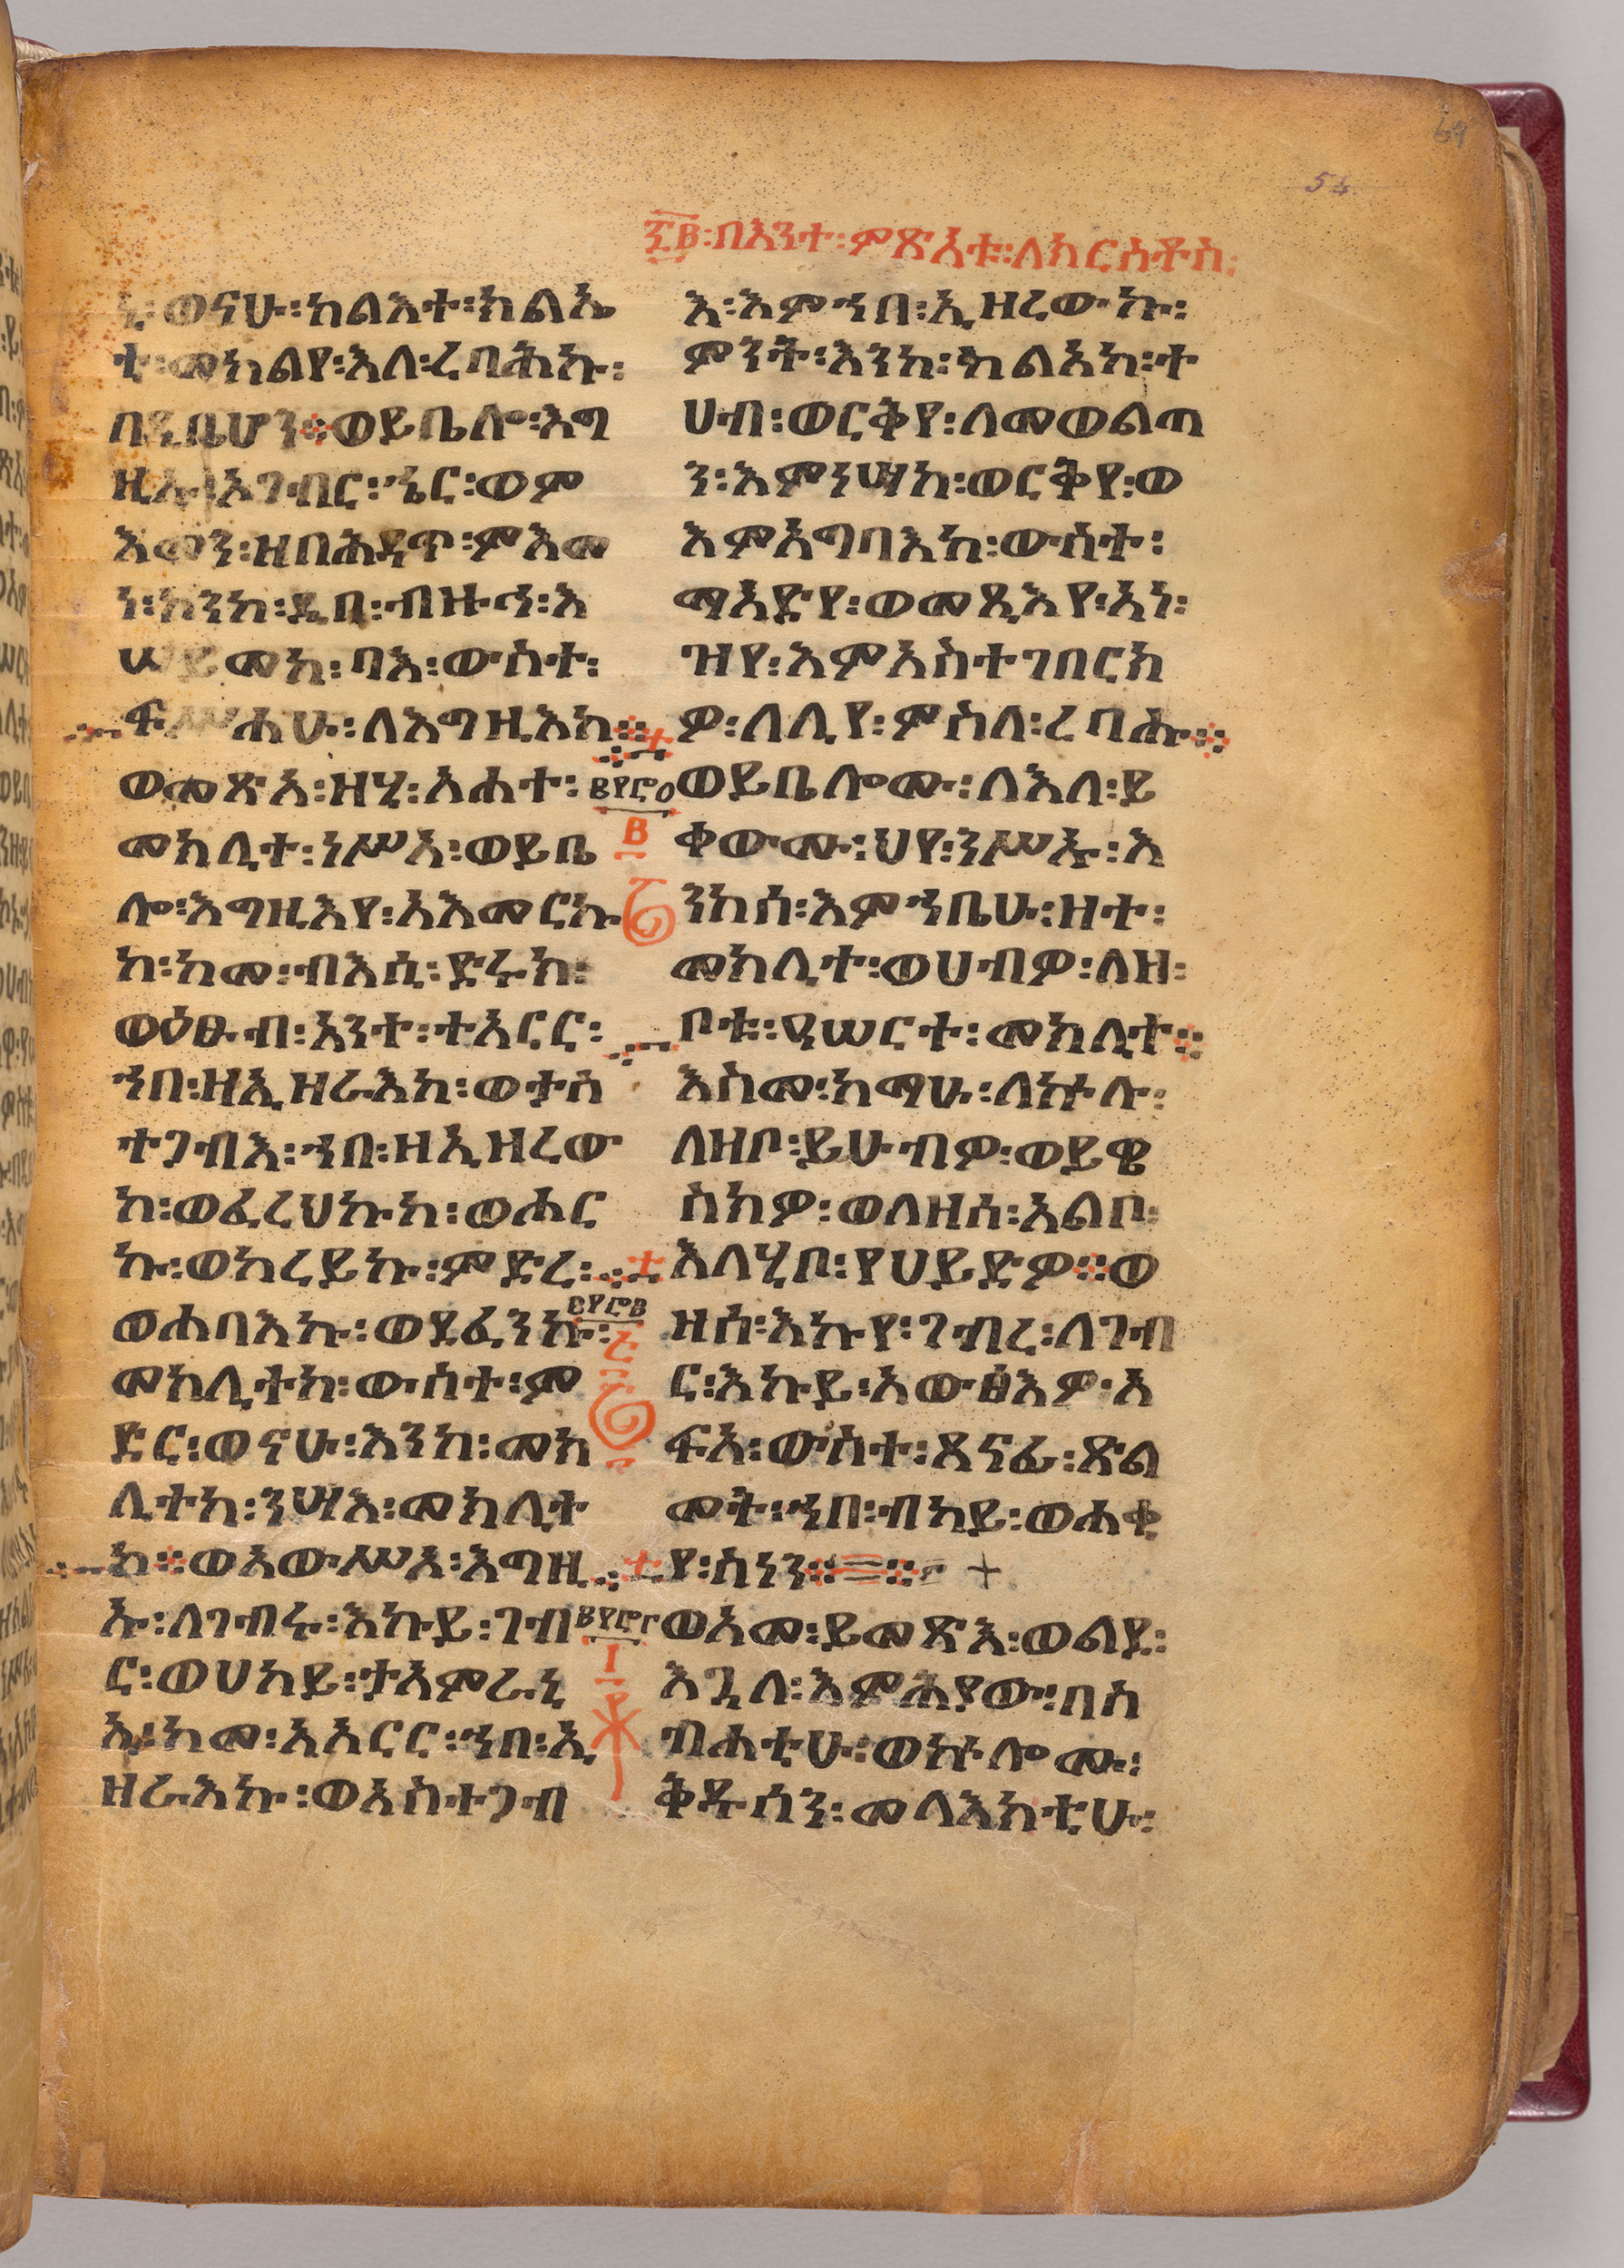 69
54
፷፪፡በእንተ፡ምጽአቱ፡ለክርስቶስ፡
ኒ፡ወናሁ፡ከልአተ፡ክልኤ
ቲ፡መክልየ፡እለ፡ረባሕኩ፡
በዲቤሆን፨ወይቤሎ፡እግ
ዚኡ፡አገብር፡ኄር፡ወም
እመን፡ዘበሕዳጥ፡ምእመ
ነ፡ኮንከ፡ዲበ፡ብዙኅ፡እ
ሠይመከ፡ባእ፡ውስተ፡
ፍሥሐሁ፡ለእግዚእከ፨
ወመጽአ፡ዘሂ፡አሐተ፡
መክሊተ፡ነሥአ፡ወይቤ
ሎ፡እግዚእየ፡አአመርኩ
ከ፡ከመ፡ብእሲ፡ድሩክ፡
ወዕፁብ፡አንተ፡ተአርር፡
ኀበ፡ዘኢዘራእከ፡ወታስ
ተጋብእ፡ኀበ፡ዘኢዘረው
ከ፡ወፈረህኩከ፡ወሐር
ኩ፡ወከረይኩ፡ምድረ፡
ወሐባእኩ፡ወደፈንኩ፡
መክሊተከ፡ውስተ፡ም
ድር፡ወናሁ፡እንከ፡መክ
ሊተከ፡ንሣእ፡መክሊት
ከ፨ወአውሥአ፡እግዚ
ኡ፡ለገብሩ፡እኩይ፡ገብ
ር፡ወሀካይ፡ታአምረኒ
ኑ፡ከመ፡አአርር፡ኀበ፡ኢ
ዘራእኩ፡ወአስተጋብ
፪፻፸፬
፪
፪፻፸፪
፪፻፸፫
፲
እ፡እምኀበ፡ኢዘረውኩ፡
ምንት፡እንከ፡ክልአከ፡ተ
ሀብ፡ወርቅየ፡ለመወልጣ
ን፡እምነሣከ፡ወርቅየ፡ወ
እምአግባእከ፡ውስተ፡
ማእድየ፡ወመጺእየ፡አነ፡
ዝየ፡እምአስተገበርክ
ዎ፡ለሊየ፡ምስለ፡ረባሑ፨
ወይቤሎሙ፡ለእለ፡ይ
ቀውሙ፡ህየ፡ንሥኡ፡እ
ንከሰ፡እምኀቤሁ፡ዘተ፡
መክሊተ፡ወሀብዎ፡ለዘ፡
ቦቱ፡ዓሠርተ፡መክሊተ፨
እስመ፡ከማሁ፡ለኵሉ፡
ለዘቦ፡ይሁብዎ፡ወይዌ
ስክዎ፡ወለዘሰ፡አልቦ፡
እለሂቦ፡የሀይድዎ፨ወ
ዘሰ፡እኩየ፡ገብረ፡ለገብ
ር፡እኩይ፡አውፅእዎ፡አ
ፍአ፡ውስተ፡ጸናፊ፡ጽል
መት፡ኀበ፡ብካይ፡ወሐቂ
የ፡ስነን፨=፨
ወአመ፡ይመጽእ፡ወልደ፡
እጓለ፡እምሕያው፡በስ
ብሐቲሁ፡ወኵሎሙ፡
ቅዱሳን፡መላእክቲሁ፡